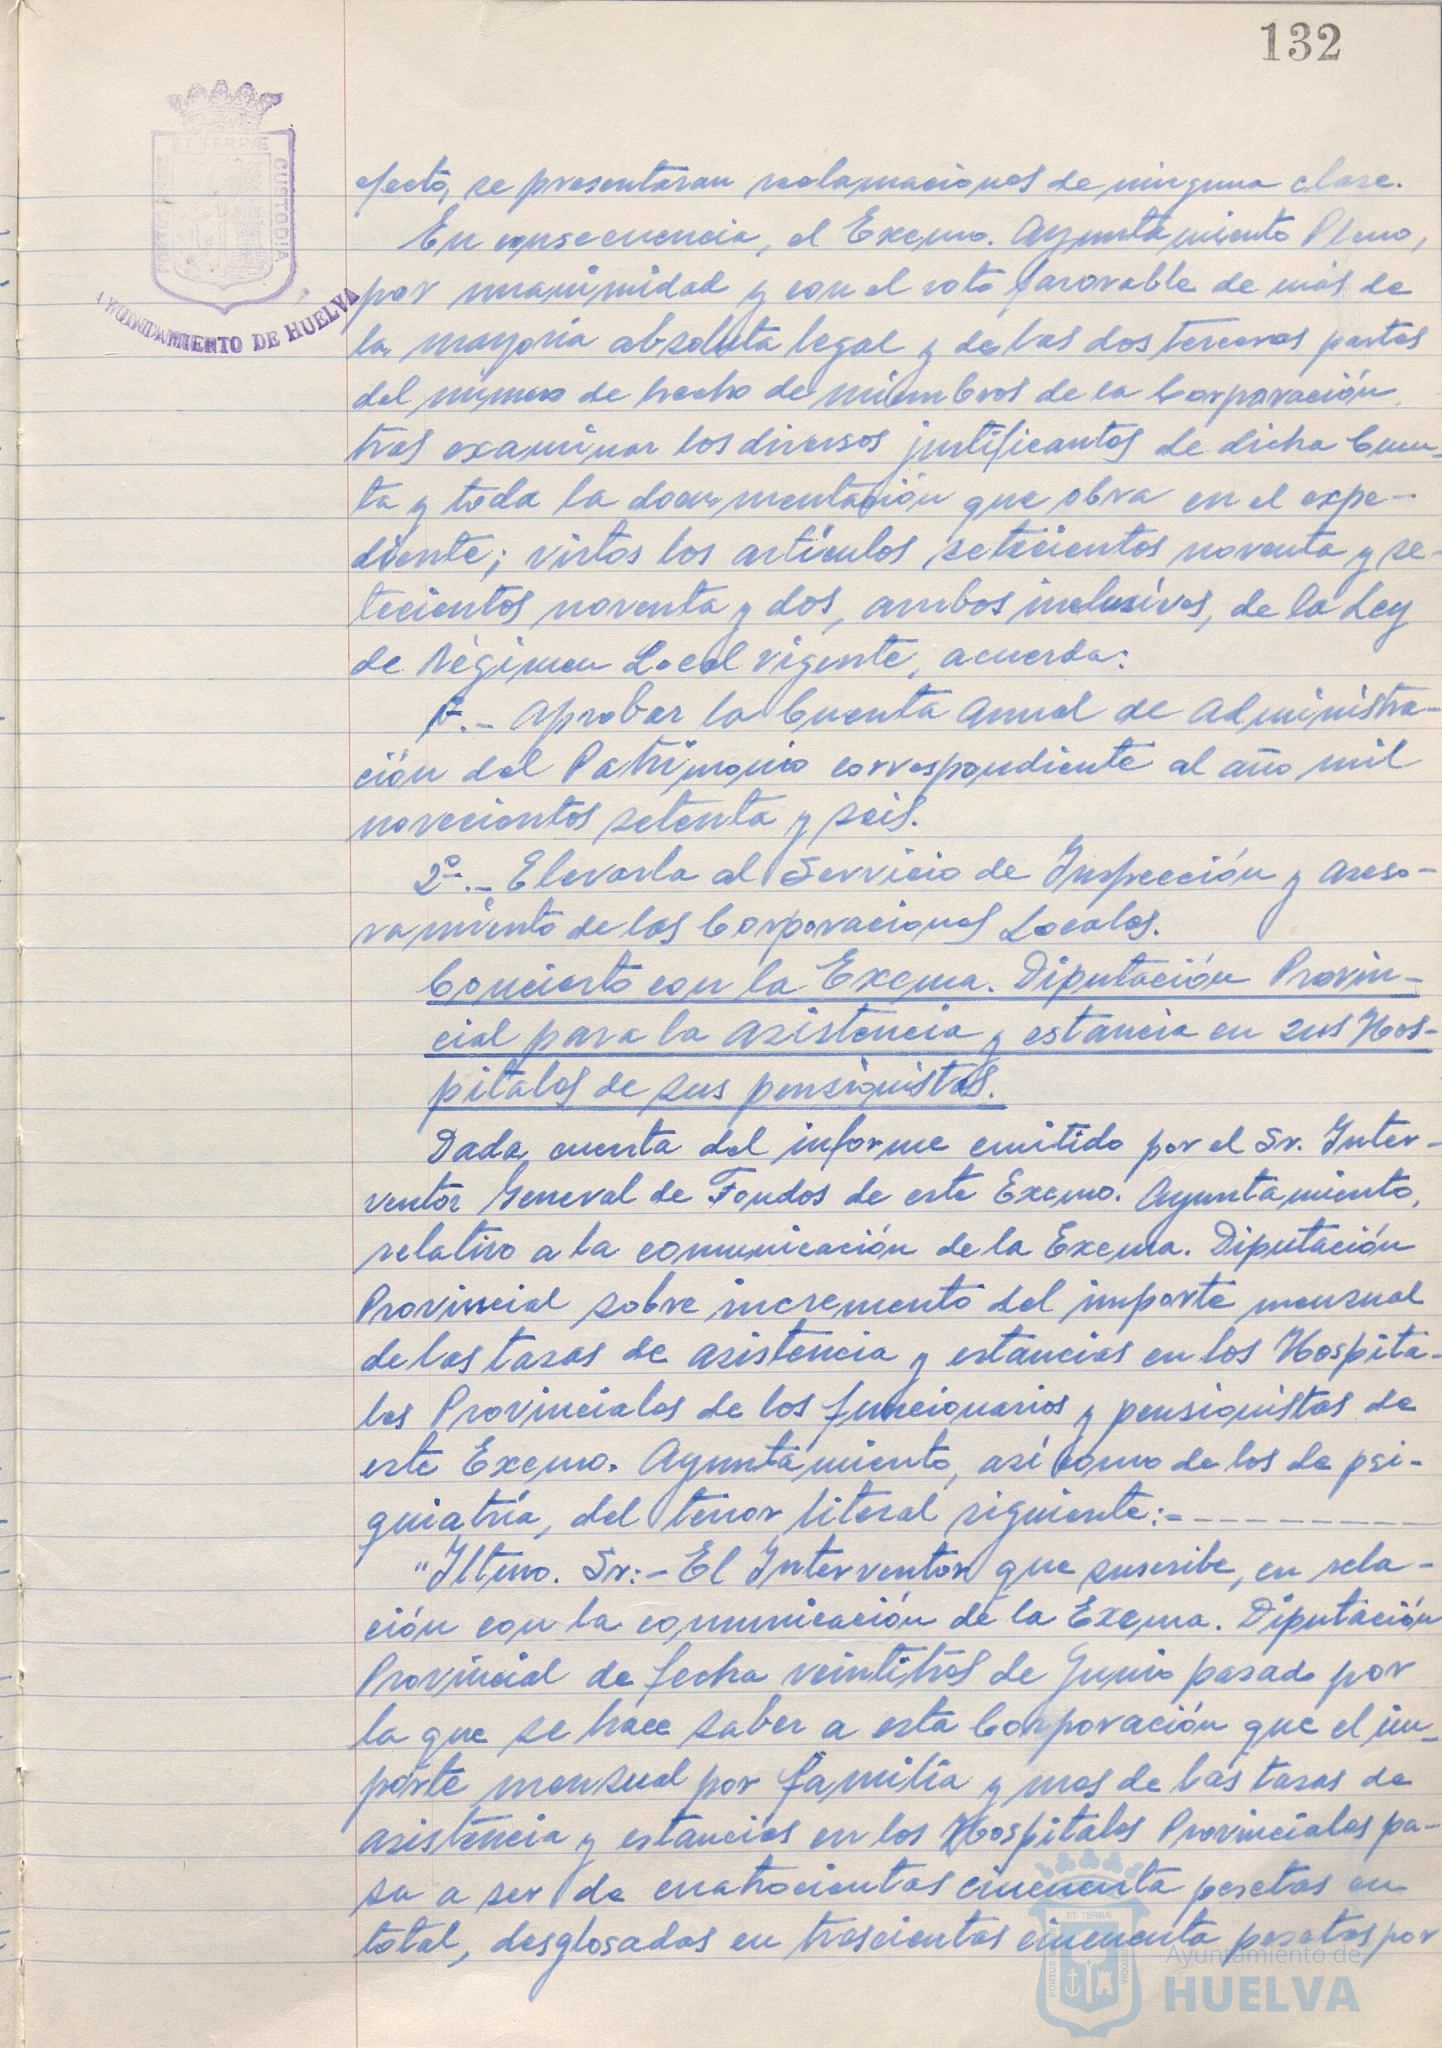 132
ET TERRÆ
CUSTODIA
AYUNTAMIENTO DE HUELVA
efecto, se presentaran reclamaciones de ninguna clase.
En consecuencia, el Excmo. Ayuntamiento Pleno,
por unanimidad y con el voto favorable de más de
la mayoría absoluta legal y de las dos terceras partes
del número de hecho de miembros de la Corporación,
tras examinar los diversos justificantes de dicha Cuen-
ta y toda la documentación que obra en el expe-
diente; vistos los artículos setecientos noventa y se-
tecientos noventa y dos, ambos inclusives, de la Ley
de Régimen Local vigente, acuerda:
1º.- Aprobar la Cuenta Anual de Administra-
ción del Patrimonio correspondiente al año mil
novecientos setenta y seis.
2º.- Elevarla al Servicio de Inspección y Aseso-
ramiento de las Corporaciones Locales.
Concierto con la Excma. Diputación Provin-
cial para la asistencia y estancia en sus Hos-
pitales de sus pensionistas.
Dada cuenta del informe emitido por el Sr. Inter-
ventor General de Fondos de este Excmo. Ayuntamiento,
relativo a la comunicación de la Excma. Diputación
Provincial sobre incremento del importe mensual
de las tasas de asistencia y estancias en los Hospita-
les Provinciales de los funcionarios y pensionistas de
este Excmo. Ayuntamiento, así como de los de psi-
quiatría, del tenor literal siguiente:- - - - - - - - -
"Iltmo. Sr:- El Interventor que suscribe, en rela-
ción con la comunicación de la Excma. Diputación
Provincial de fecha veintitres de Junio pasado por
la que se hace saber a esta Corporación que el im-
porte mensual por familia y mes de las tasas de
asistencia y estancias en los Hospitales Provinciales pa-
sa a ser de cuatrocientas cincuenta pesetas en
total, desglosadas en trescientas cincuenta pesetas por
Ayuntamiento de
HUELVA